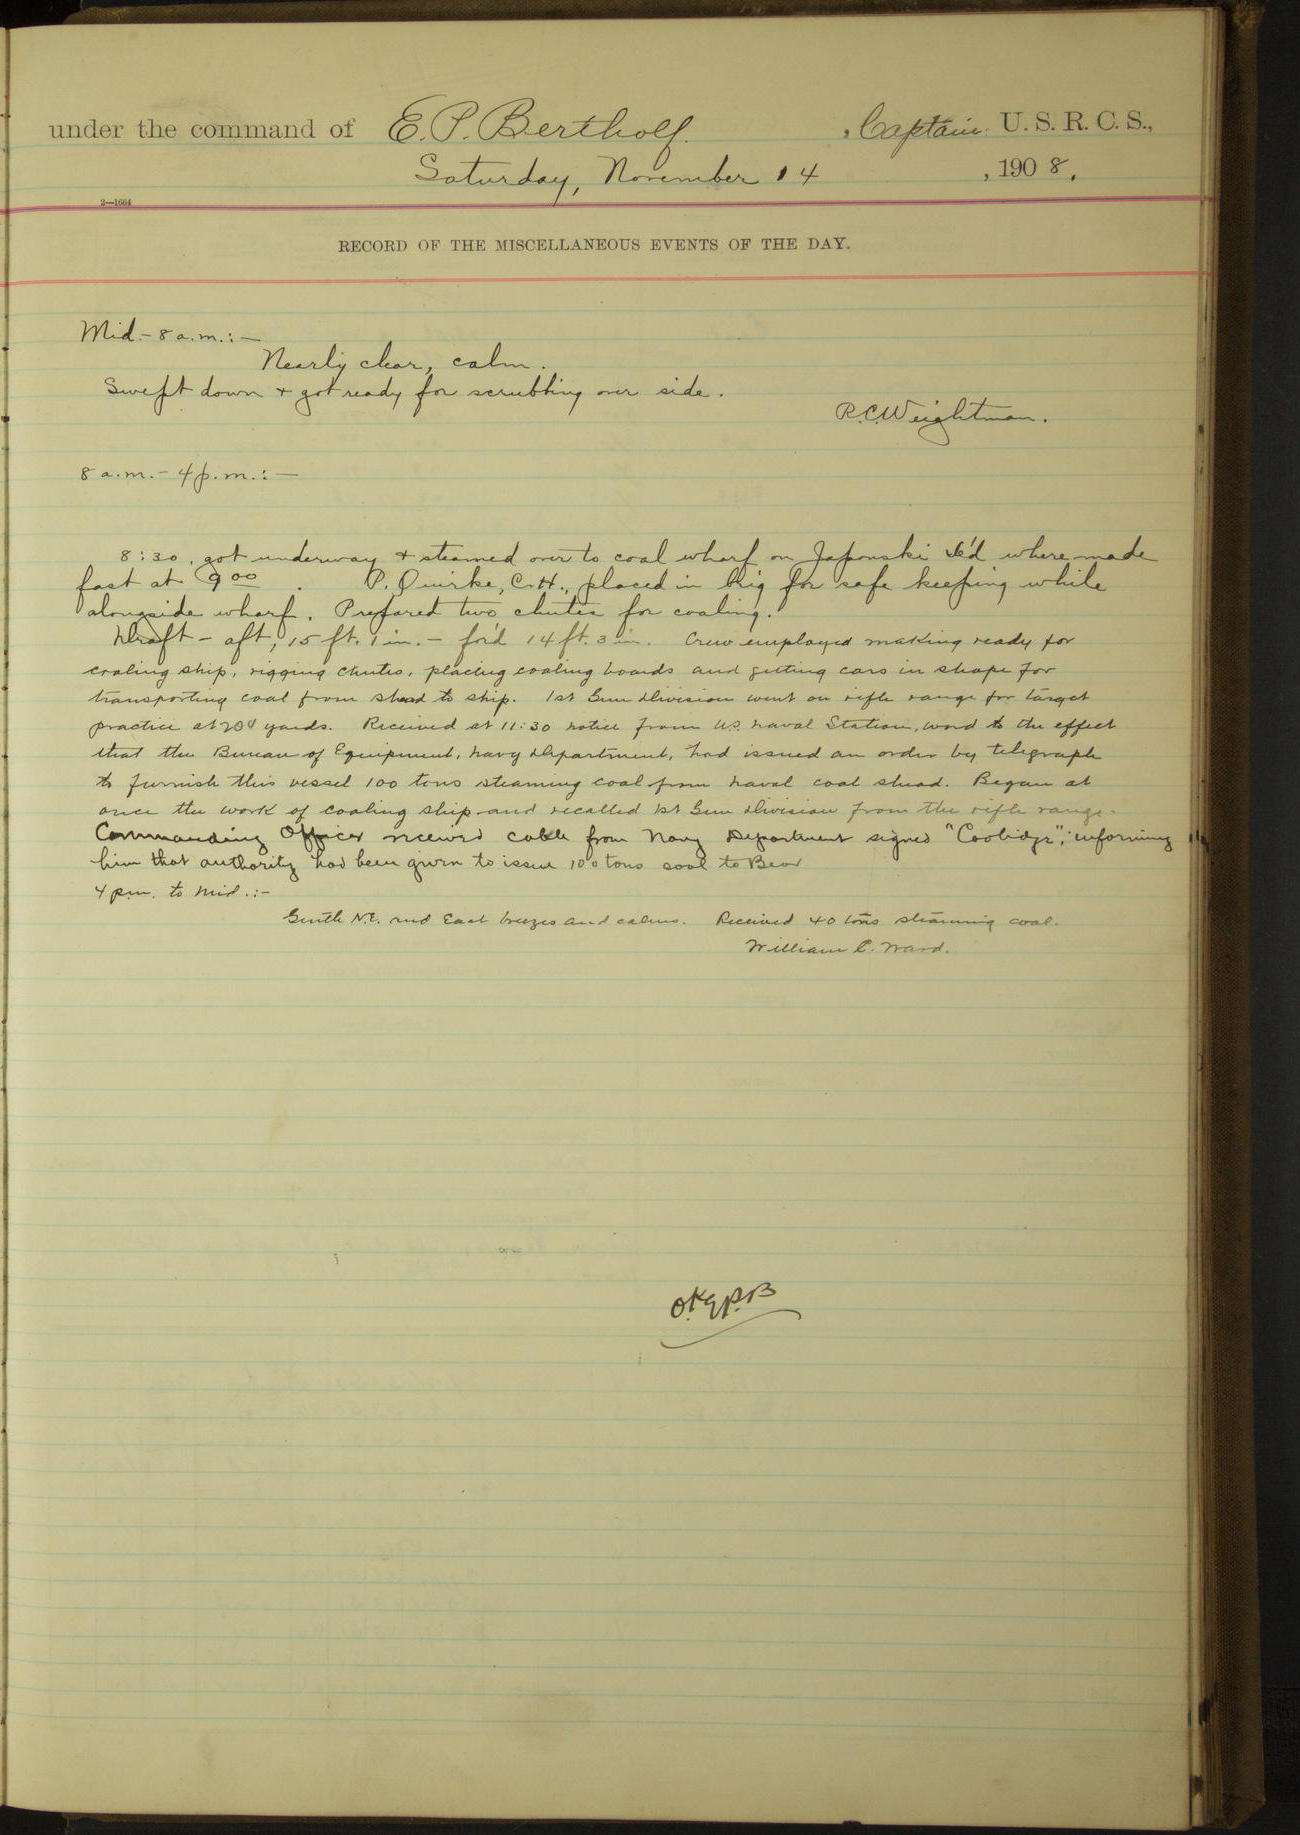 under the command of E. P. Bertholf. , Captain. U. S. R. C. S.,
Saturday, November 14 , 1908.
2—1664
RECORD OF THE MISCELLANEOUS EVENTS OF THE DAY.
Mid.- 8 a.m.:—
Nearly clear, calm.
Swept down + got ready for scrubbing over side.
R.C. Weightman.
8 a.m.- 4 p.m.:—
8:30, got underway + steamed over to coal wharf on Japonski Is'd where made
fast at 9 00. P. Quirke, C.H., placed in brig for safe keeping while
alongside wharf. Prepared two chutes for coaling.
Draft - aft, 15 ft. 1 in. - for'd 14 ft. 3 in. Crew employed making ready for
coaling ship, rigging chutes, placing coaling boards and getting cars in shape for
transporting coal from shed to ship. 1st Gun Division went on rifle range for target
practice at 200 yards. Received at 11:30 notice from U.S. Naval Station, word to the effect
that the Bureau of Equipment, Navy Department, had issued an order by telegraph
to furnish this vessel 100 tons steaming coal from naval coal shead. Began at
once the work of coaling ship and recalled 1st Gun Division from the rifle range.
Commanding Officer received cable from Navy Department signed "Coolidge", informing
him that authority had been given to issue 100 tons coal to Bear
4 p.m. to Mid.:-
Gentle N.E. and East breezes and calms. Received 40 tons steaming coal.
William C. Ward.
O.K. E.P.B